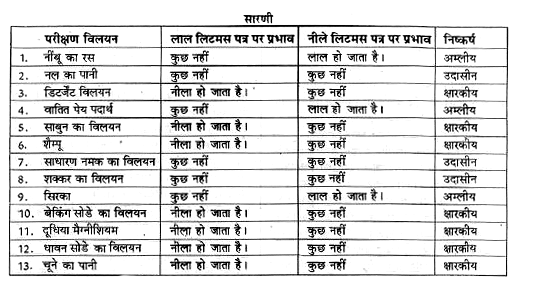 सारणी
परीक्षण विलयन लाल लिटमस पत्र पर प्रभाव नीले लिटमस पत्र पर प्रभाव निष्कर्ष
1. नींबू का रस कुछ नहीं लाल हो जाता है। अम्लीय
2. नल का पानी कुछ नहीं कुछ नहीं उदासीन
3. डिटर्जेंट विलयन नीला हो जाता है। कुछ नहीं क्षारकीय
4. वातित पेय पदार्थ कुछ नहीं लाल हो जाता है। अम्लीय
5. साबुन का विलयन नीला हो जाता है। कुछ नहीं क्षारकीय
6. शैम्पू नीला हो जाता है। कुछ नहीं क्षारकीय
7. साधारण नमक का विलयन कुछ नहीं कुछ नहीं उदासीन
8. शक्कर का विलयन कुछ नहीं कुछ नहीं उदासीन
9. सिरका कुछ नहीं लाल हो जाता है। अम्लीय
10. बेकिंग सोडे का विलयन नीला हो जाता है। कुछ नहीं क्षारकीय
11. दूधिया मैग्नीशियम नीला हो जाता है। कुछ नहीं क्षारकीय
12. धावन सोडे का विलयन नीला हो जाता है। कुछ नहीं क्षारकीय
13. चूने का पानी नीला हो जाता है। कुछ नहीं क्षारकीय